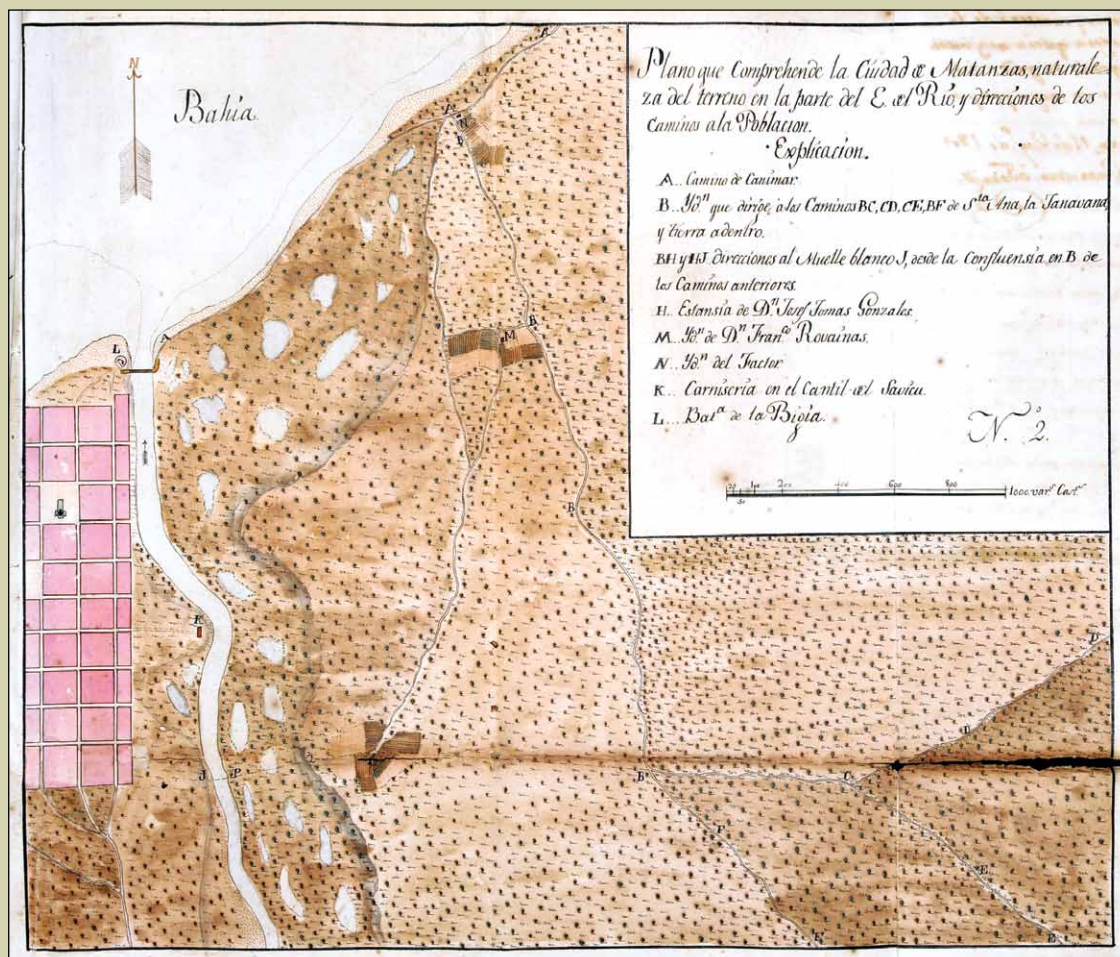 N
Bahía.
Plano que Comprehende la Ciudad de Matanzas, naturale-
za del terreno en la parte del E. del Rio, y direcciones de los
Caminos a la Poblacion.
Explicacion.
A.. Camino de Canimar
B.. Yd.n que dirige, a los Caminos BC, CD, CE, BF de S.ta Ana, la Tanavana,
y tierra adentro.
BH y HJ direcciones al Muelle blanco J, desde la Confluensia en B de
los Caminos anteriores.
H.. Estansia de D.n Josef Tomas Gonzales.
M.. Yd.n de D.n Fran.co Rovainas.
N.. Yd.n del Factor
K... Carniseria en el Cantil del
L.... Bat.a de la Bigia.
N.o 2.
50 100 200 400 600 800 1000 var.s Cast.s
A
N
B
M
B
L
A
B
K
J
P
B
C
D
D
F
E
F
E